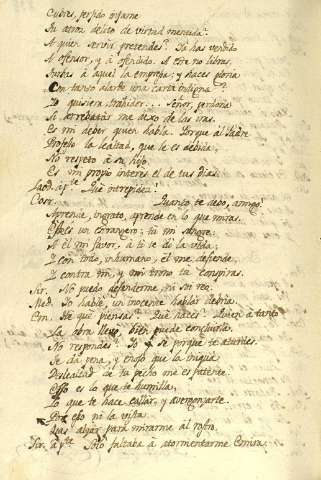 Cubres, perfido infame
tu atroz delito de virtud mentida?
A quien servir pretendes? Tu has vendido
A ofensor, y á ofendido. A este no libras,
á aquel la empresa; y haces gloria
Con tanto alarde una carta indigna?
Yo quisiera trahidor... Señor, perdona
Si arrebatár me dexo de las iras.
Es mi deber quien habla. Porque al Padre
la lealtad, que le es debida,
No respeto á su hijo.
Es mi propio interes el de tus dias.
Laod. ap.te Qué intrepidez!
Cosr. Quanto te devo, amigo!
Aprende, ingrato, aprende en lo que miras.
Este es un estrangero: tú mi sangre:
A él mi favor, á ti te di la vida;
Y con todo, inhumano, él me defiende
Y contra mí, y mi trono tu conspiras.
Sir. No puedo defenderme, ni soy reo.
Med. Yo hablé: un inocente hablár debria.
Em. Y qué piensas? Qué haces? Quien á tanto
La obra llevó, bien puede concluirla.
No respondes? Yo sé porque te aturdes.
Te dá pena, y enojo que la iniqua
Deslealtad de tu pecho me es patente.
Esso es lo que te humilla,
Lo que te hace callár, y avergonzarte.
Por eso ni la vista
alzár para mirarme al rostro.
Sir. ap.te Solo faltaba á atormentarme Emira.